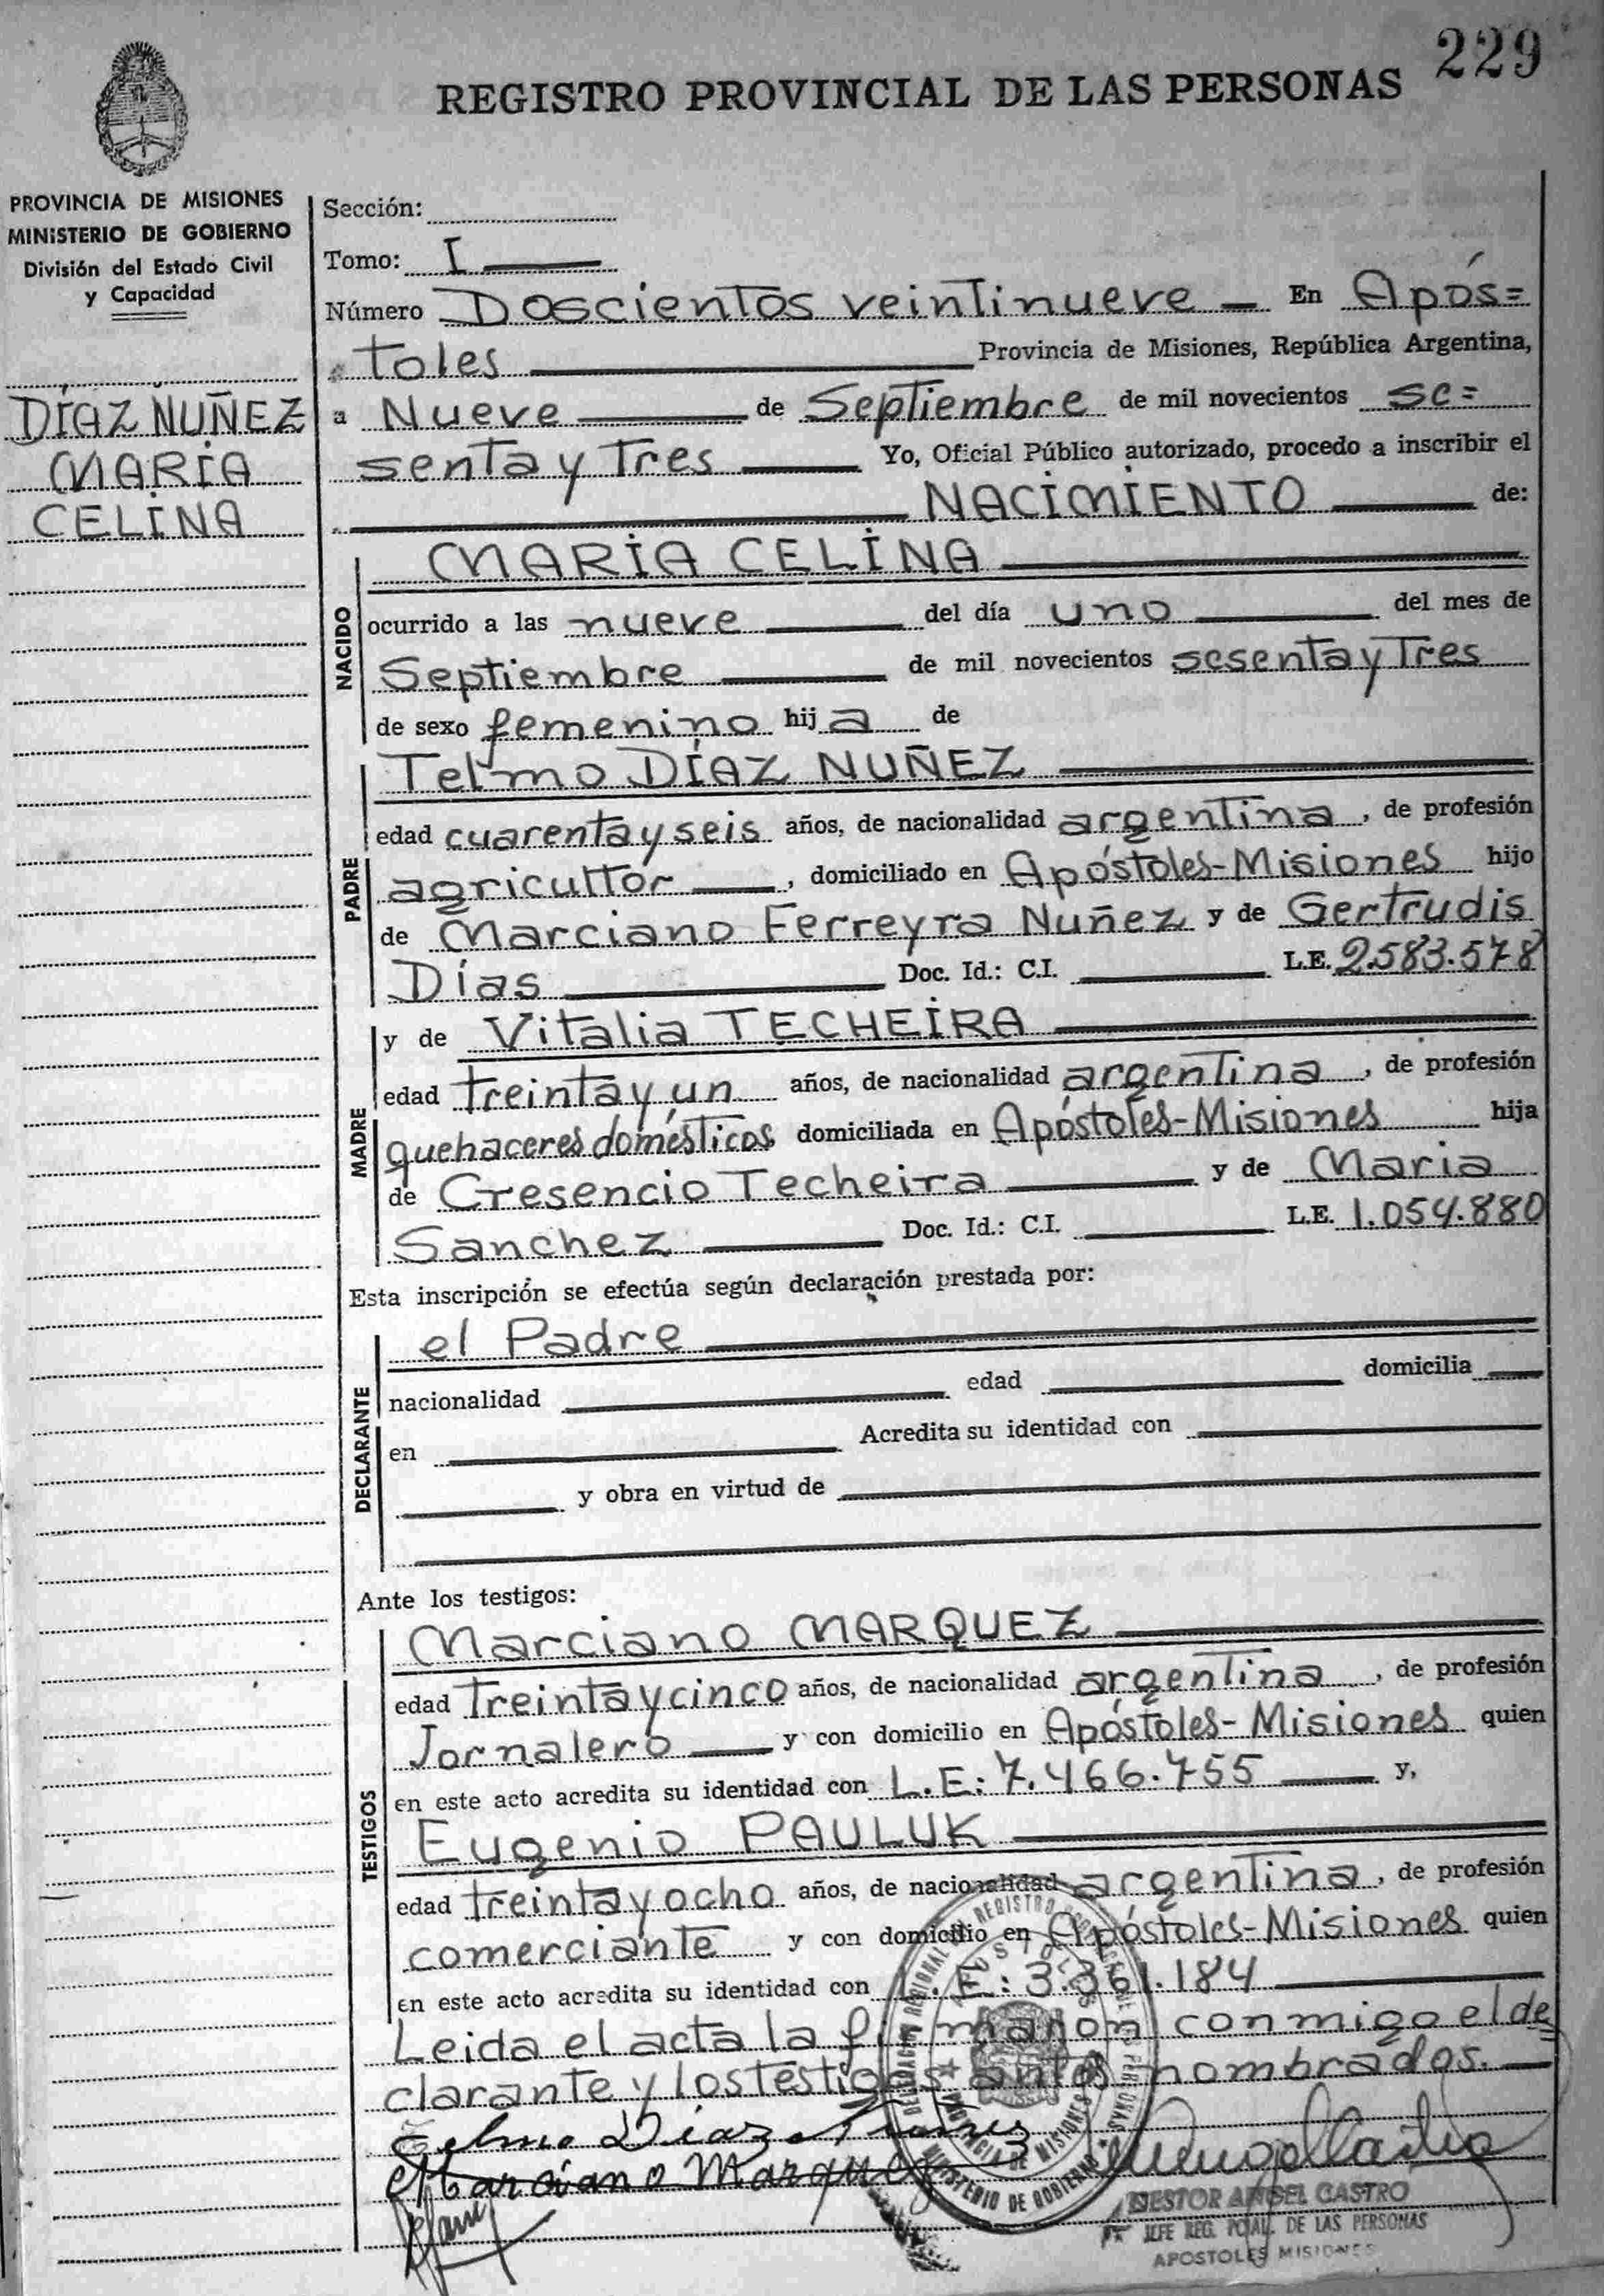 229
REGISTRO PROVINCIAL DE LAS PERSONAS
PROVINCIA DE MISIONES
MINISTERIO DE GOBIERNO
División del Estado Civil
y Capacidad
DÍAZ NUÑEZ
MARÍA
CELINA
Sección:
Tomo: I
Número Doscientos veintinueve — En Após=
toles Provincia de Misiones, República Argentina,
a Nueve de Septiembre de mil novecientos se=
senta y Tres Yo, Oficial Público autorizado, procedo a inscribir el
NACIMIENTO de:
NACIDO
MARÍA CELINA
ocurrido a las nueve del día uno del mes de
Septiembre de mil novecientos sesenta y Tres
de sexo femenino hij a de
PADRE
Telmo DÍAZ NUÑEZ
edad cuarenta y seis años, de nacionalidad argentina, de profesión
agricultor, domiciliado en Apóstoles-Misiones hijo
de Marciano Ferreyra Nuñez y de Gertrudis
Días Doc. Id.: C.I. L.E. 2.583.578
MADRE
y de Vitalia TECHEIRA
edad treinta y un años, de nacionalidad argentina, de profesión
quehaceres domésticos domiciliada en Apóstoles-Misiones hija
de Cresencio Techeira y de Maria
Sanchez Doc. Id.: C.I. L.E. 1.054.880
Esta inscripción se efectúa según declaración prestada por:
DECLARANTE
el Padre
nacionalidad edad domicilia
en Acredita su identidad con
y obra en virtud de
Ante los testigos:
TESTIGOS
Marciano MARQUEZ
edad treinta y cinco años, de nacionalidad argentina, de profesión
Jornalero y con domicilio en Apóstoles-Misiones quien
en este acto acredita su identidad con L.E: 7.466.755 y,
Eugenio PAULUK
edad treinta y ocho años, de nacionalidad argentina, de profesión
comerciante y con domicilio en Apóstoles-Misiones quien
en este acto acredita su identidad con L.E: 3.361.184
Leida el acta la firmaron conmigo el de=
clarante y los testigos antes nombrados.
Telmo Diaz Nuñes
Marciano Marquez
NESTOR ANGEL CASTRO
JEFE REG. PCIAL. DE LAS PERSONAS
APOSTOLES MISIONES
DELEGACION REGIONAL REGISTRO PROVINCIAL DE PERSONAS
APOSTOLES
PROVINCIA DE MISIONES
MINISTERIO DE GOBIERNO